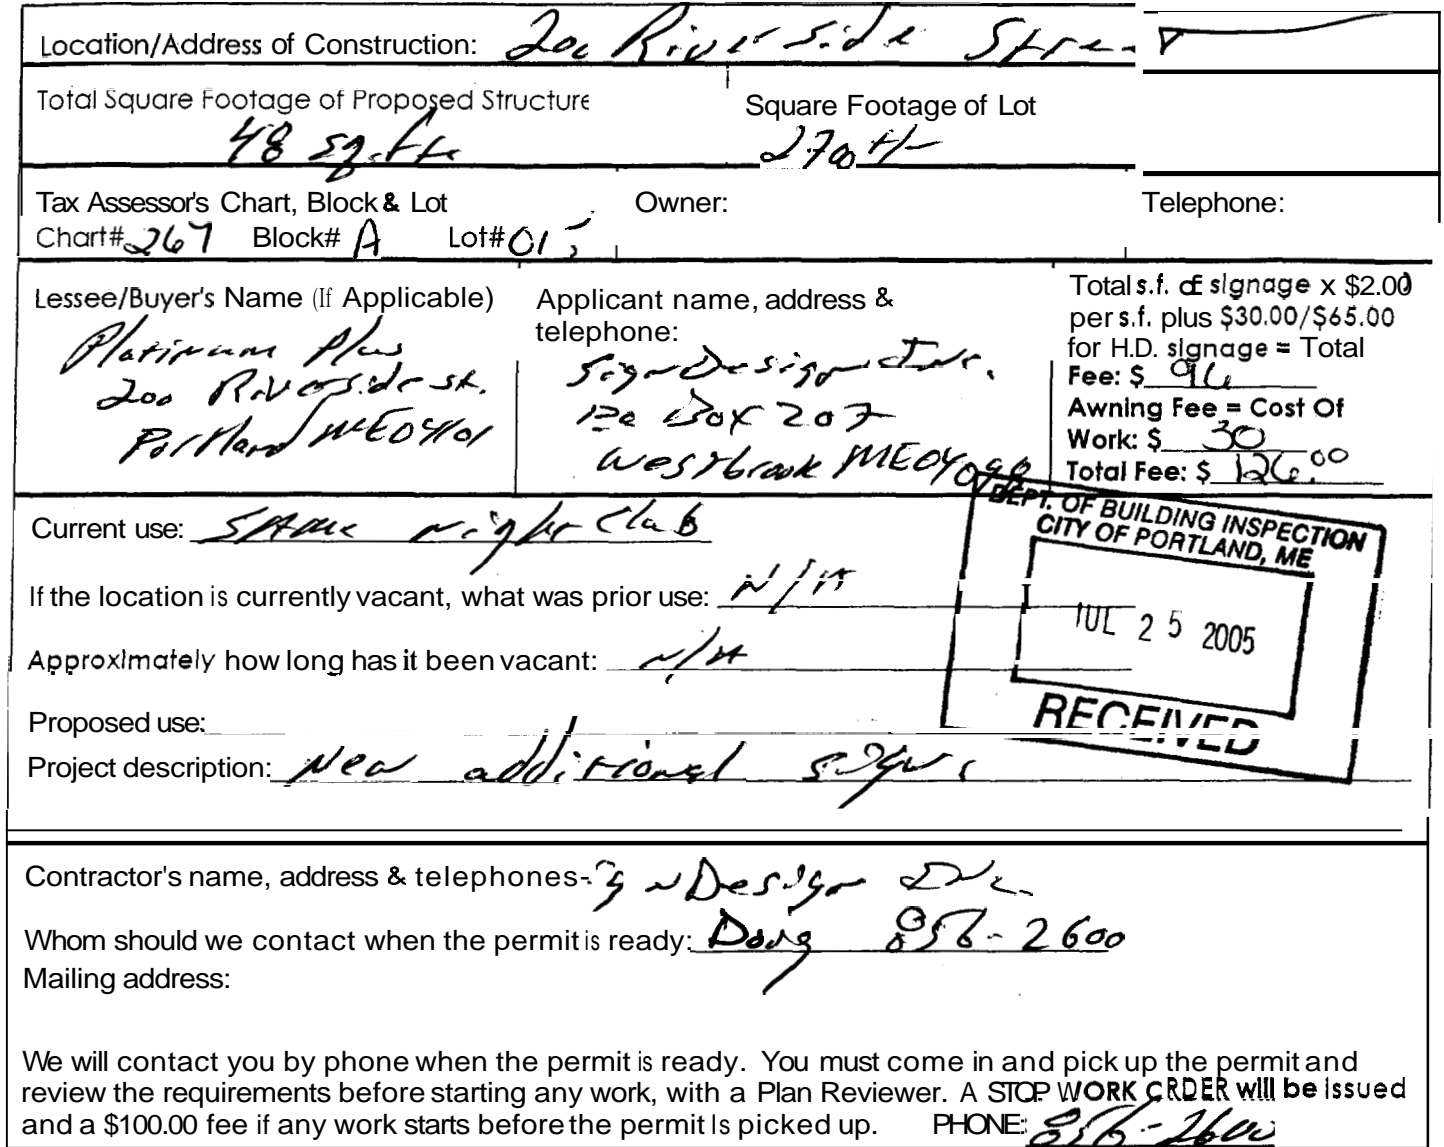 Location/Address of Construction: 200 Riverside Street
Total Square Footage of Proposed Structure
Square Footage of Lot
48 sq. ft.
2700 +/-
Tax Assessor's Chart, Block & Lot
Chart# 267 Block# A Lot# 015
Owner:
Telephone:
Lessee/Buyer's Name (If Applicable)
Platinum Plus
200 Riverside st.
Portland ME 04101
Applicant name, address &
telephone:
Sign Design Inc.
Po Box 207
Westbrook ME 04098
Total s.f. of signage x $2.00
per s.f. plus $30.00/$65.00
for H.D. signage = Total
Fee: $ 96
Awning Fee = Cost Of
Work: $ 30
Total Fee: $ 126.00
Current use: SAME night Club
If the location is currently vacant, what was prior use: N/A
Approximately how long has it been vacant: N/A
Proposed use:
Project description: New additional signs
DEPT. OF BUILDING INSPECTION
CITY OF PORTLAND, ME
JUL 25 2005
RECEIVED
Contractor's name, address & telephone: Sign Design Inc.
Whom should we contact when the permit is ready: Doug 856-2600
Mailing address:
We will contact you by phone when the permit is ready. You must come in and pick up the permit and
review the requirements before starting any work, with a Plan Reviewer. A STOP WORK ORDER will be issued
and a $100.00 fee if any work starts before the permit is picked up. PHONE: 856-2600